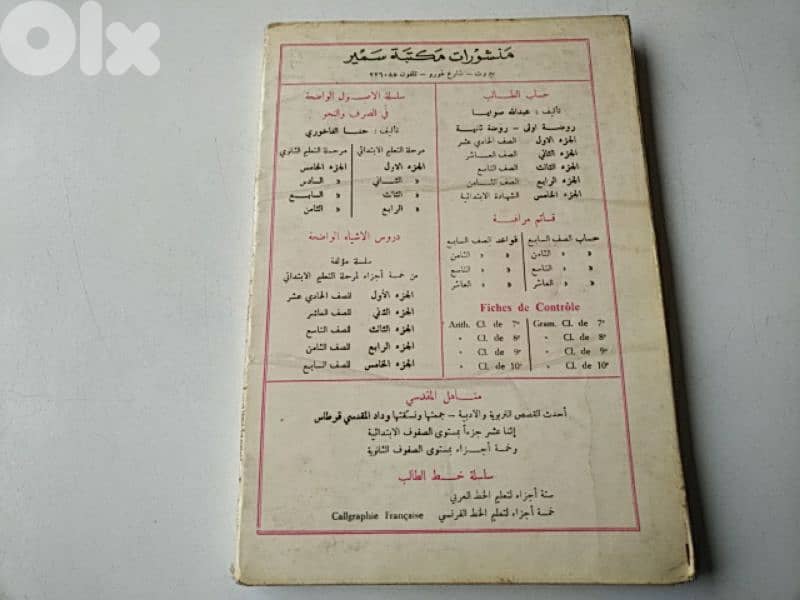 OLX
منشورات مكتبة سمير
بيروت - شارع غورو - تلفون ٢٢٦٠٨٥
حساب الطالب
تأليف : عبدالله صوايا
روضة اولى - روضة ثانية
الجزء الاول الصف الحادي عشر
الجزء الثاني الصف العاشر
الجزء الثالث الصف التاسع
الجزء الرابع الصف الثامن
الجزء الخامس الشهادة الابتدائية
قسائم مراقبة
حساب الصف السابع
« « الثامن
« « التاسع
« « العاشر
قواعد الصف السابع
« « الثامن
« « التاسع
« « العاشر
Fiches de Contrôle
Arith. Cl. de 7e
" Cl. de 8e
" Cl. de 9e
" Cl. de 10e
Gram. Cl. de 7e
" Cl. de 8e
" Cl. de 9e
" Cl. de 10e
سلسلة الاصول الواضحة
في الصرف والنحو
تأليف : حنا الفاخوري
مرحلة التعليم الابتدائي
الجزء الاول
« الثاني
« الثالث
« الرابع
مرحلة التعليم الثانوي
الجزء الخامس
« السادس
« السابع
« الثامن
دروس الاشياء الواضحة
سلسلة مؤلفة
من خمسة أجزاء لمرحلة التعليم الابتدائي
الجزء الأول للصف الحادي عشر
الجزء الثاني للصف العاشر
الجزء الثالث للصف التاسع
الجزء الرابع للصف الثامن
الجزء الخامس للصف السابع
مناهل المقدسي
أحدث القصص التربوية والادبية - جمعتها ونسقتها وداد المقدسي قرطاس
إثنا عشر جزءاً بمستوى الصفوف الابتدائية
وخمسة أجزاء بمستوى الصفوف الثانوية
سلسلة خط الطالب
ستة أجزاء لتعليم الخط العربي
خمسة أجزاء لتعليم الخط الفرنسي Callgraphie Française